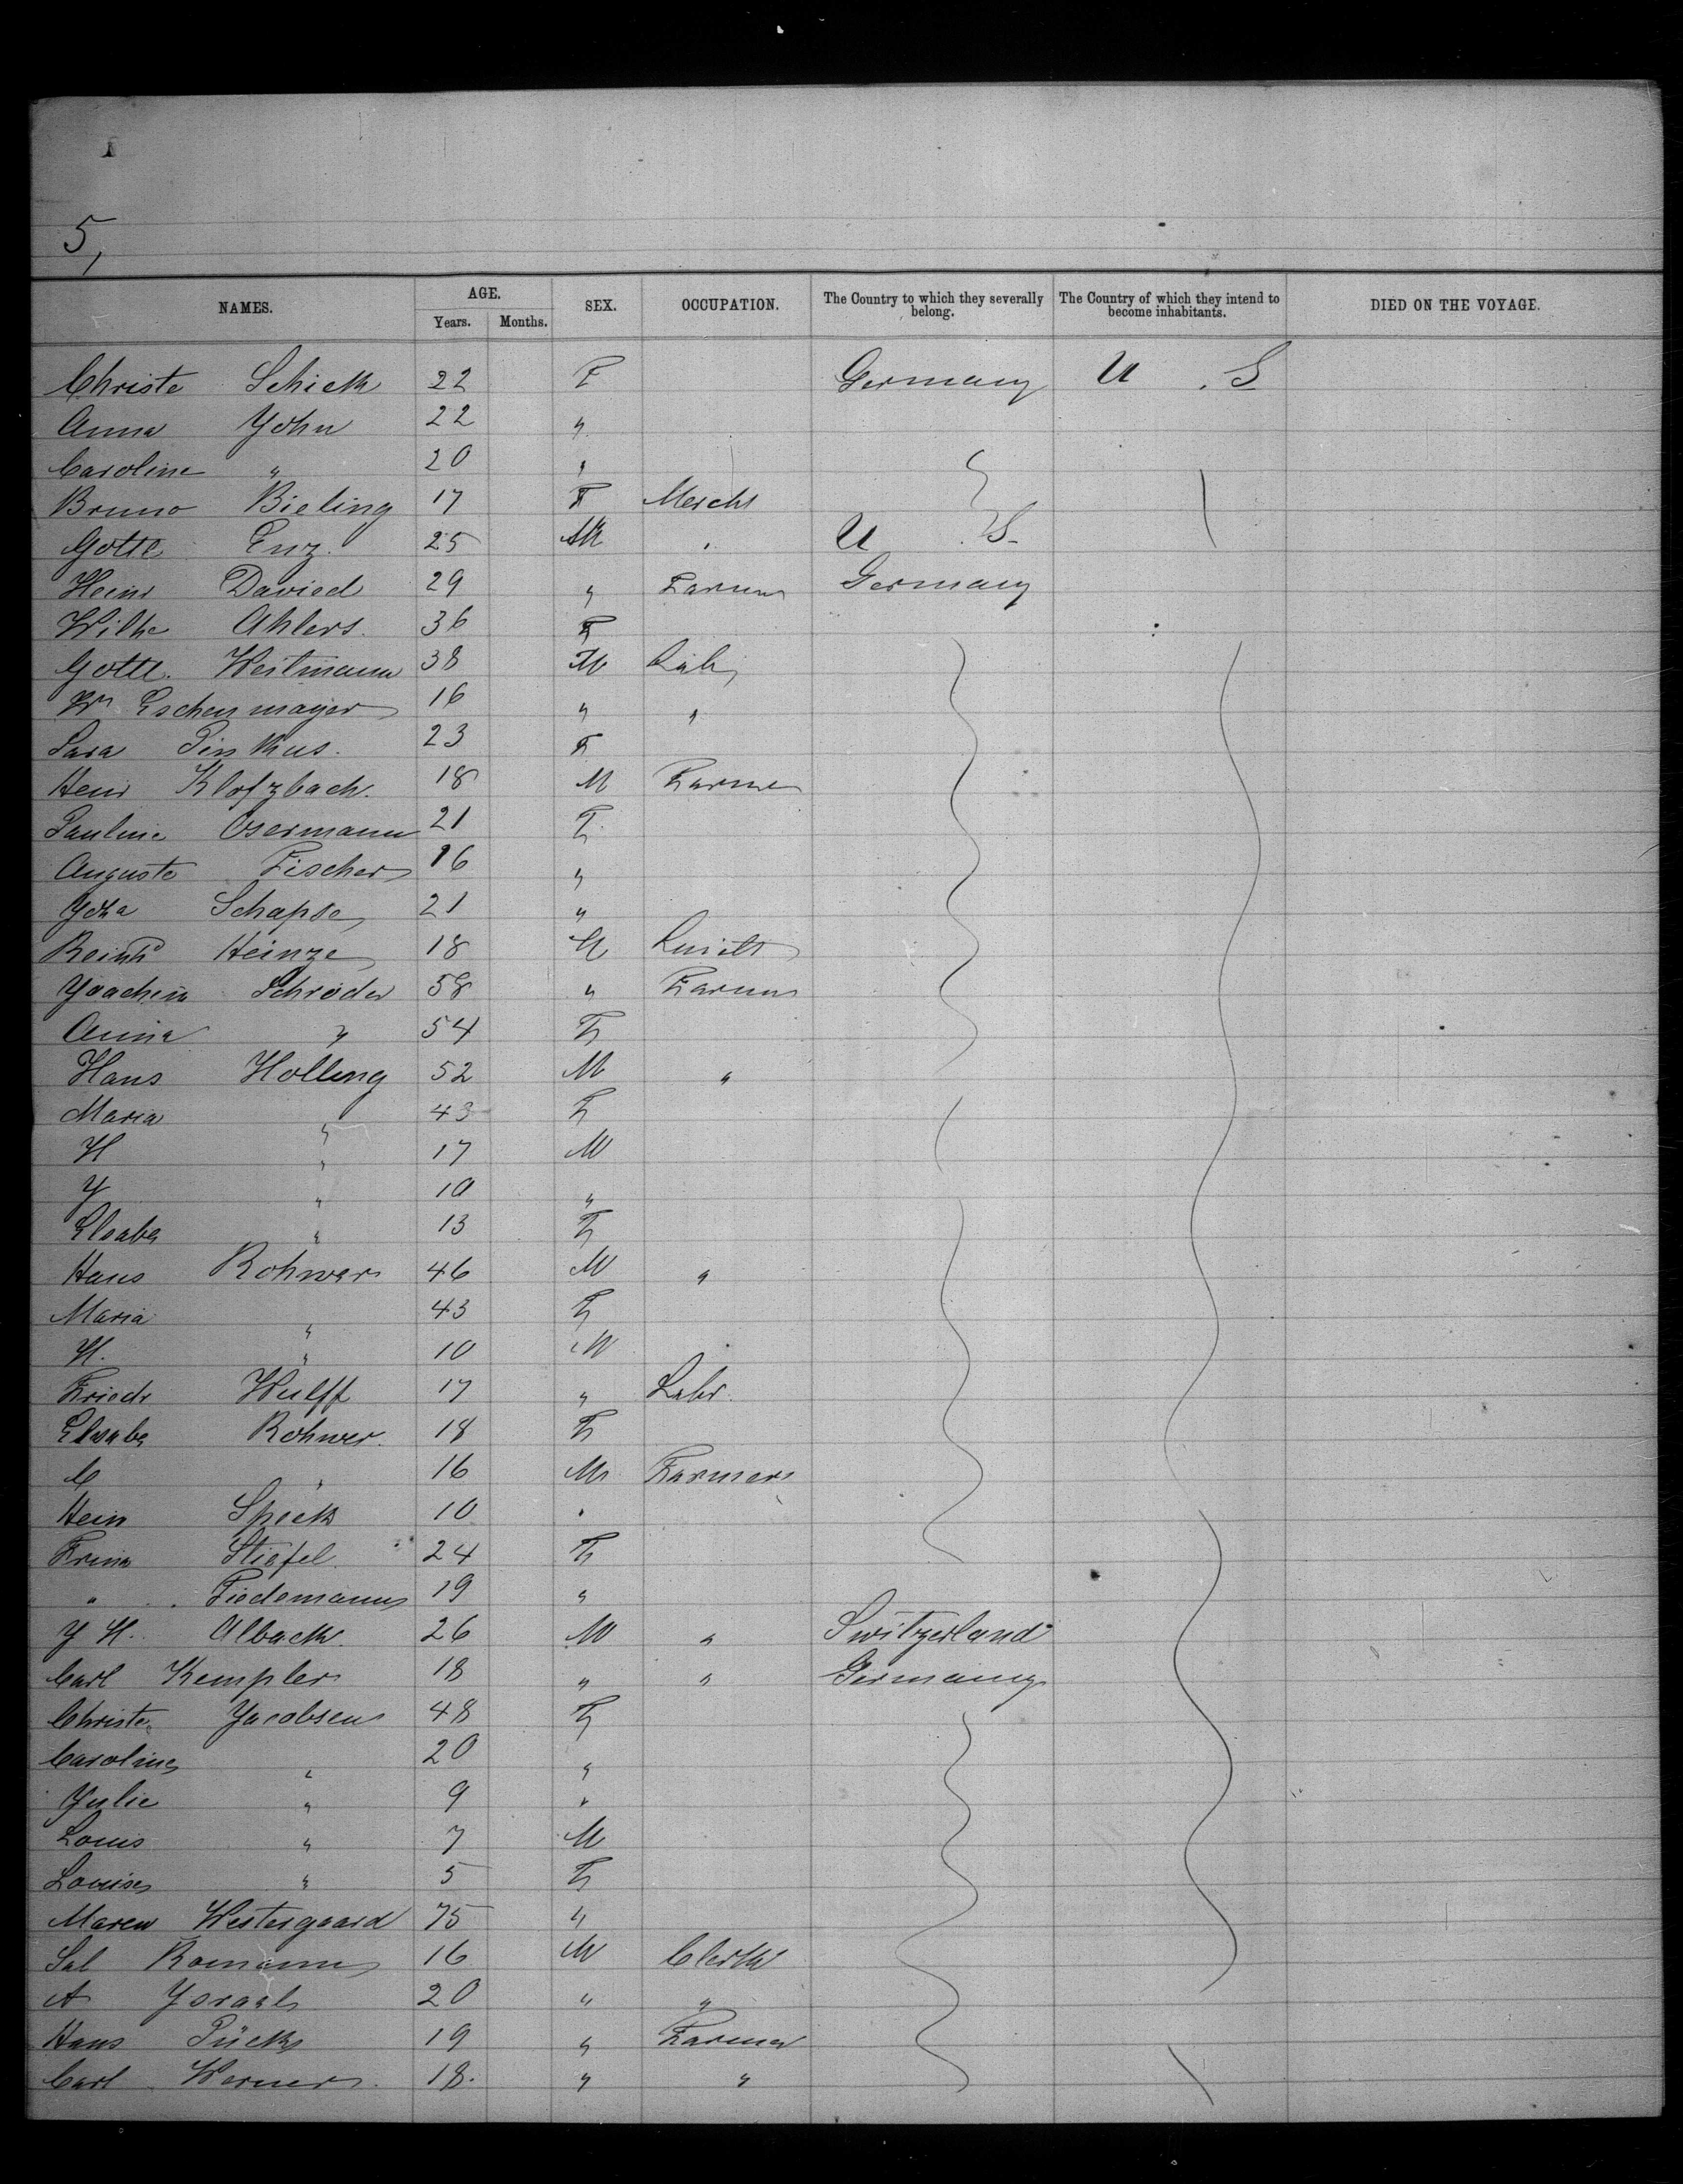 5,
NAMES. AGE. Years. Months. SEX. OCCUPATION. The Country to which they severally belong. The Country of which they intend to become inhabitants. DIED ON THE VOYAGE.
Christe Schick 22 F Germany U . S
Anna John 22 "
Caroline " 20 "
Bruno Bieling 17 F Mercht
Gottl Enz. 25 M " U . S.
Heinr Davied 29 " Farmer Germany
Wilhe Ahlers. 36 F
Gottl. Westmann 38 M
Wm Eschenmayer 16 " "
Sara Pinkus. 23 F
Heinr Klotzbach. 18 M Farmer
Pauline Osermann 21 F.
Auguste Fischer 16 "
Joha Schapse 21 "
Reinhd Heinze 18 M
Joachim Schröder 58 " Farmer
Anna " 54 F
Hans Holling 52 M "
Maria " 43 F
H " 17 M
J " 10 "
Elsabe " 13 F
Hans Rohwer 46 M "
Maria " 43 F
H. " 10 M
Friedr Wulff 17 " Labr.
Elsabe Rohwer. 18 F
C " 16 M Farmer
Hein Speck 10 "
Trina Stiefel 24 F
" Tiedemann 19 "
J H. Alback. 26 M " Switzerland
Carl Kempler 18 " " Germany
Christe. Jacobsen 48 F
Caroline " 20 "
Julie " 9 "
Louis " 7 M
Louise " 5 F
Maren Westergaard 75 "
Sal Romann 16 M Clerk
A Israel 20 " "
Hans Pück 19 " Farmer
Carl Werner. 18. " "